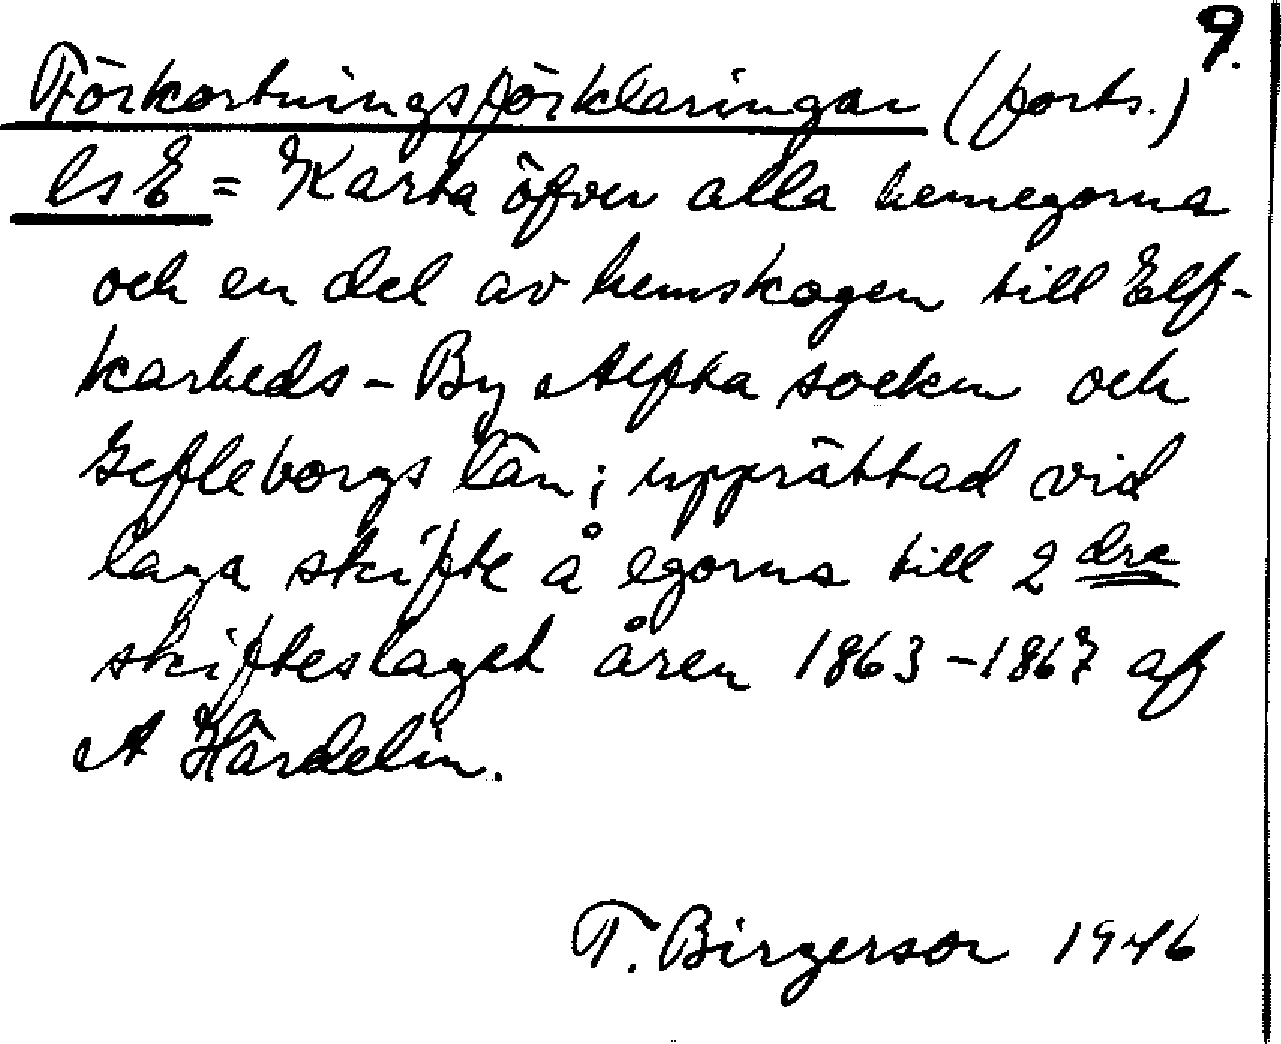 9.
Förkortningsförklaringar (forts.)
ls E = Karta öfver alla hemegorna
och en del av hemskogen till Elf-
karheds-By Alfta socken och
Gefleborgs län; upprättad vid
laga skifte å egorna till 2 dra
skifteslaget åren 1863-1867 af
A Härdelin.
T. Birgerson 1946